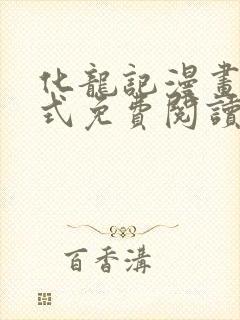 化龍記漫畫
式免費閱讀
百香溝